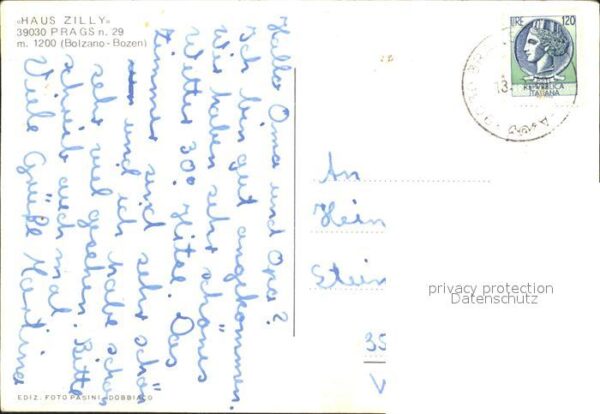 «HAUS ZILLY»
39030 PRAGS n. 29
m. 1200 (Bolzano - Bozen)
Hallo Oma und Opa?
Ich bin gut angekommen.
Wir haben sehr schönes
Wetter 30° Hitze. Das
Zimmer sind sehr schön
und ich habe schon
sehr viel gesehen. Bitte
schreib auch mal.
Viele Grüße Martina
LIRE 120
REPVBBLICA
ITALIANA
13.
An
Hein
Stein
35
V
privacy protection
Datenschutz
EDIZ. FOTO PASINI - DOBBIACO